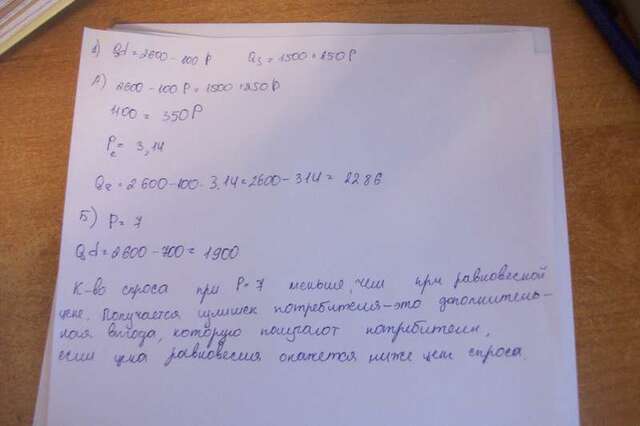 1) Qd = 2600 - 100 P Qs = 1500 + 250 P
А) 2600 - 100 P = 1500 + 250 P
1100 = 350 P
Pe = 3,14
Qe = 2 600 - 100 · 3,14 = 2600 - 314 = 2286
Б) P = 7
Qd = 2600 - 700 = 1900
К-во спроса при P = 7 меньше, чем при равновесной
цене. Получается излишек потребителя - это дополнитель-
ная выгода, которую получают потребители,
если цена равновесия окажется ниже цен спроса.